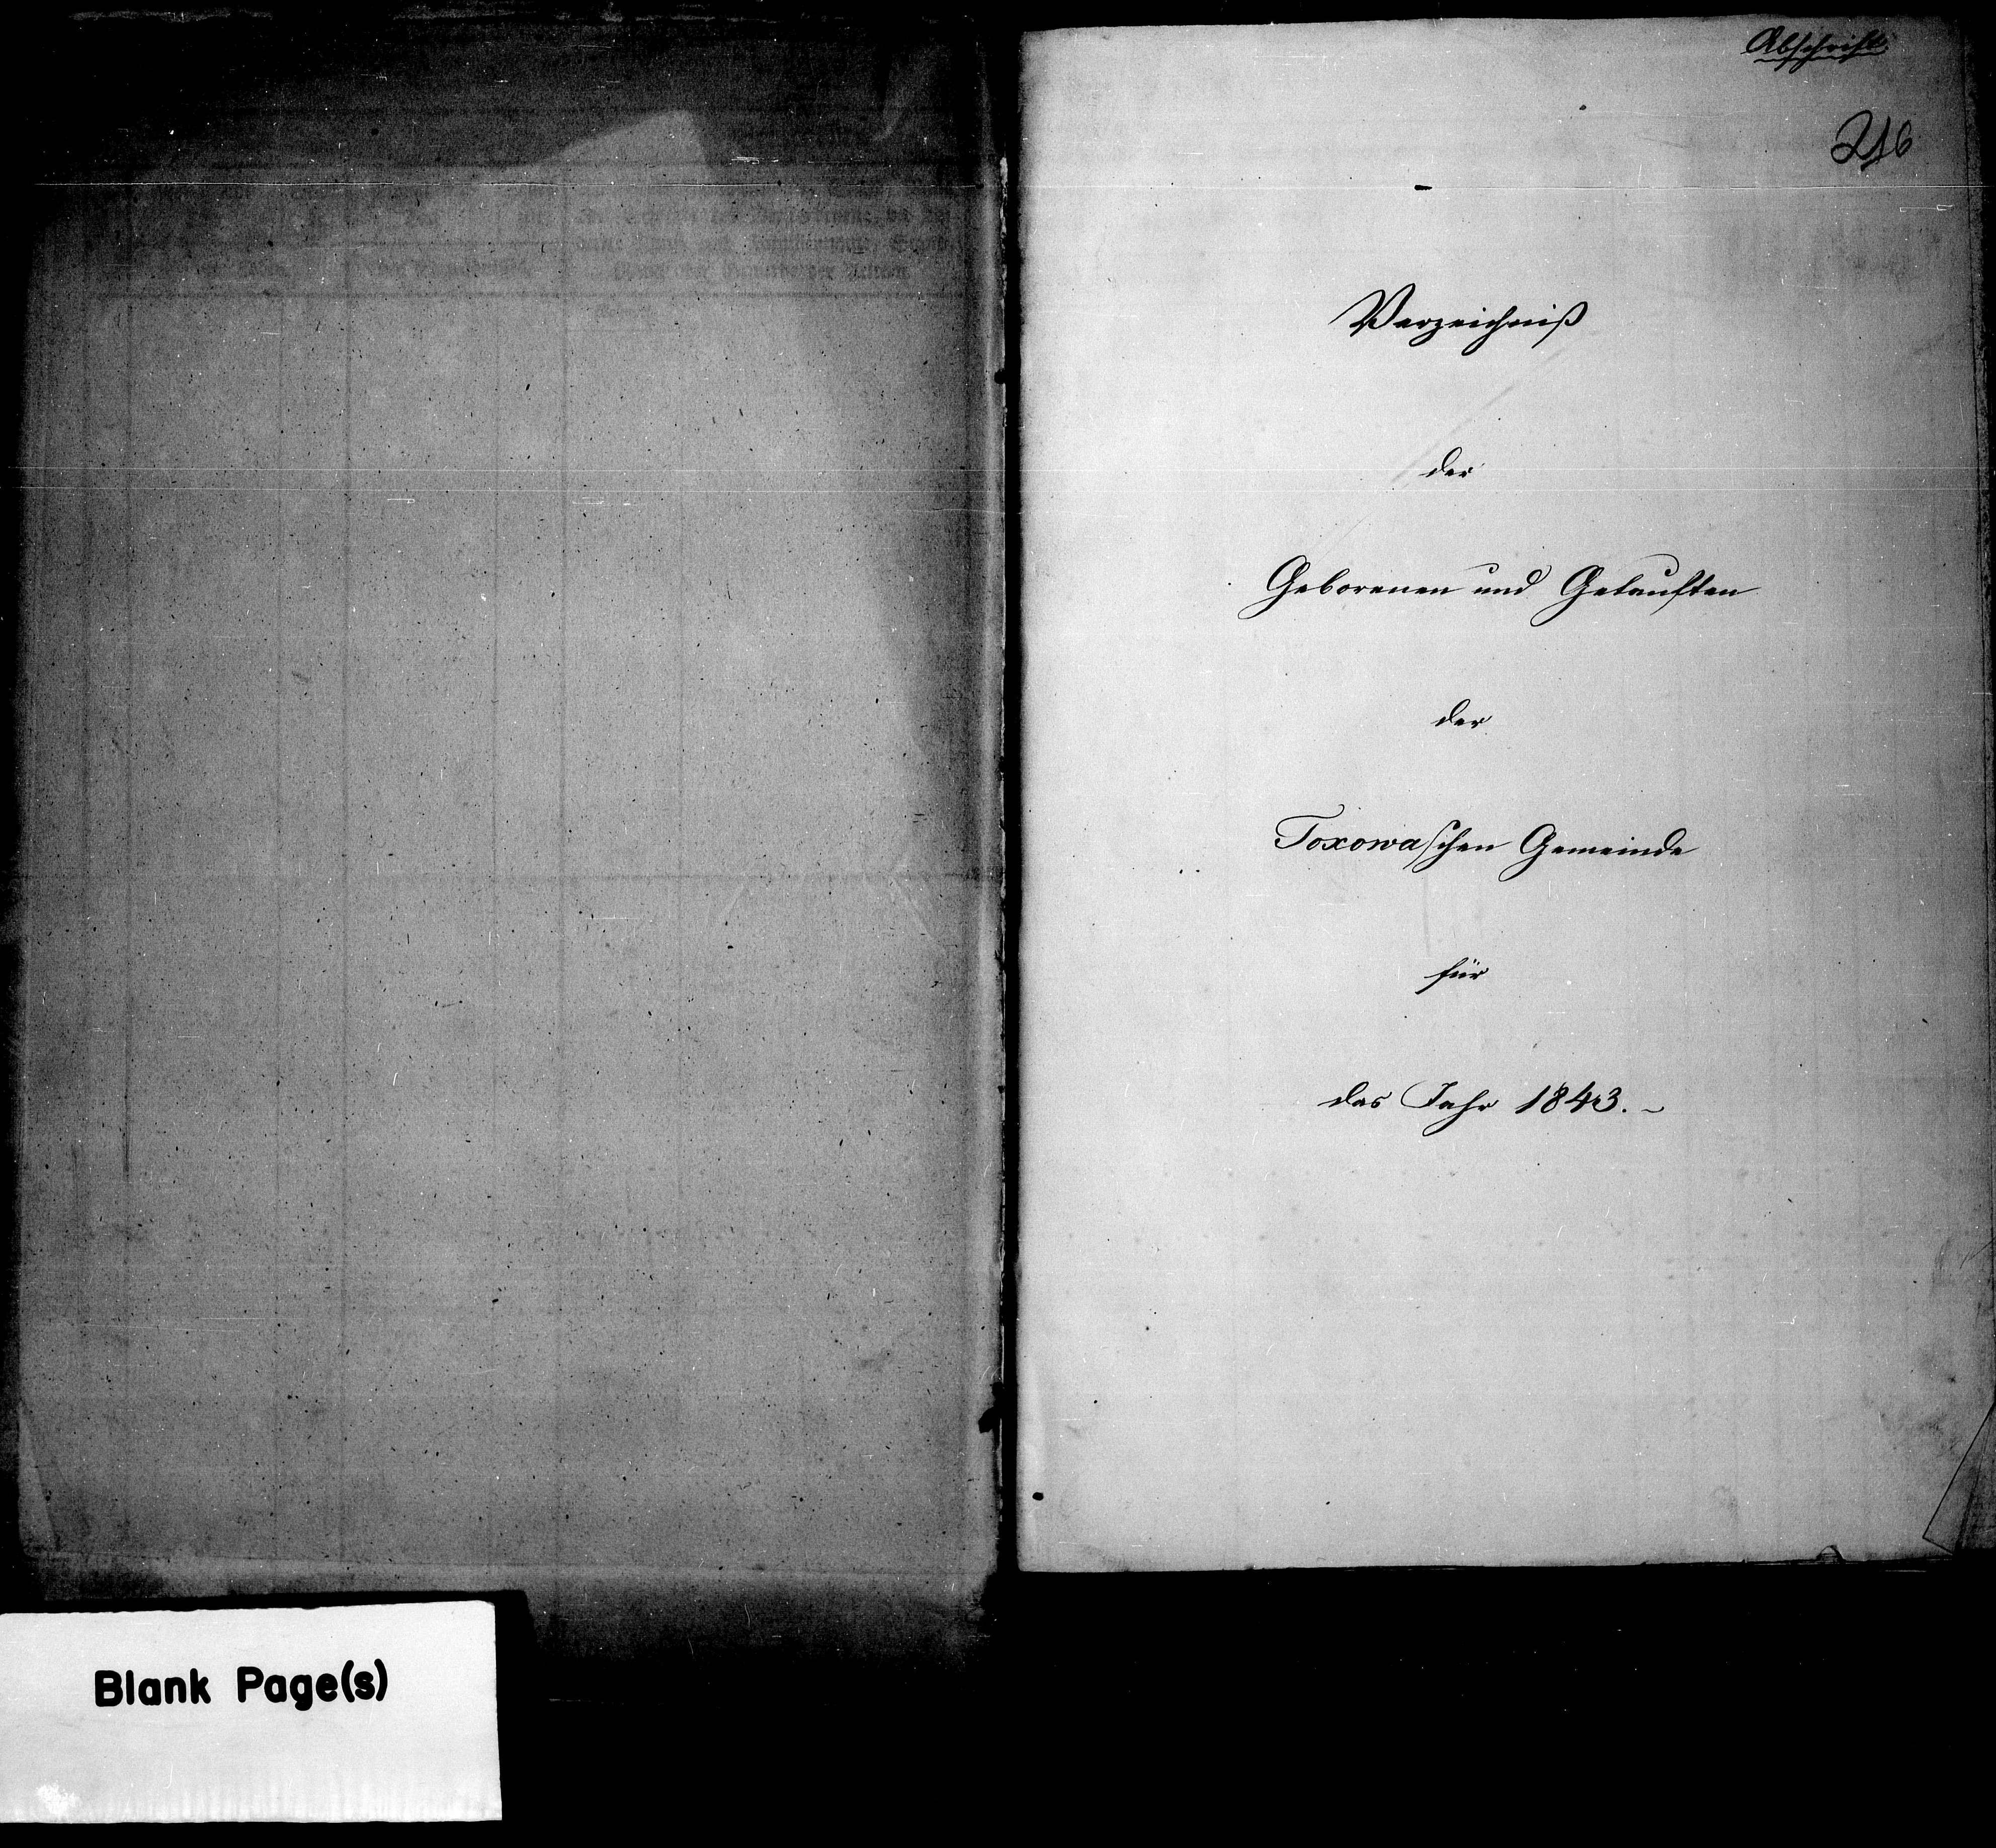 Abschrift
216
Verzeichniß
der
Geborenen und Getauften
der
Toxowaschen Gemeinde
für
das Jahr 1843. ~
Blank Page(s)